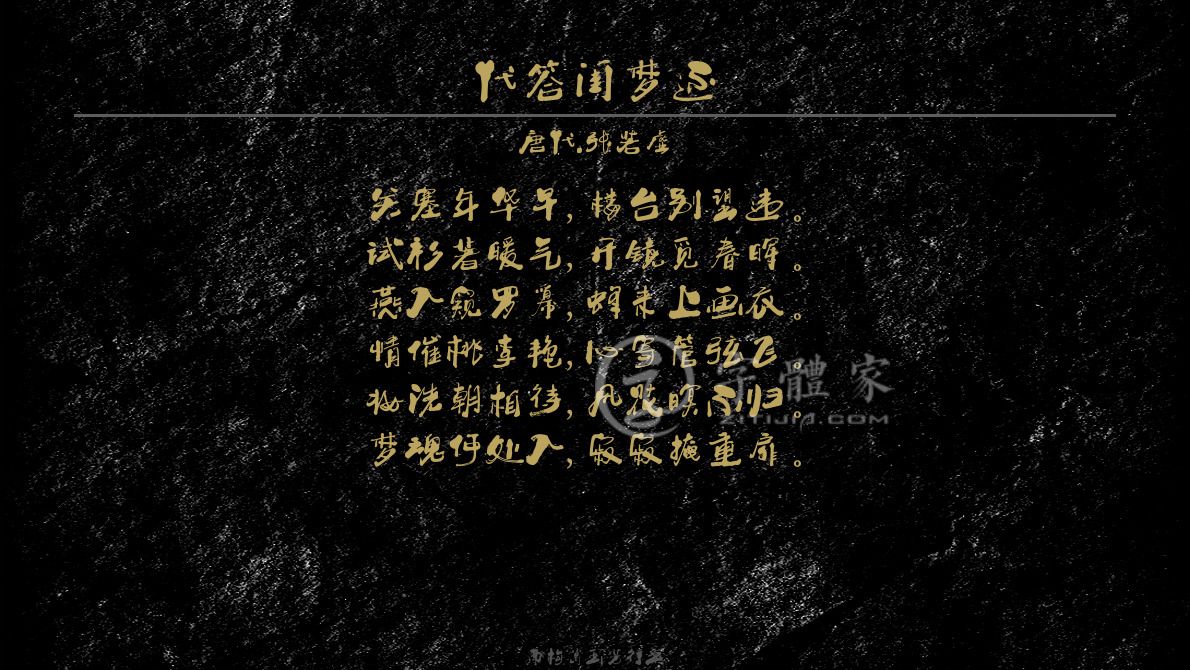 代答闺梦还
唐代.张若虚
关塞年华早，楼台别望违。
试衫著暖气，开镜觅春晖。
燕入窥罗幕，蜂来上画衣。
情催桃李艳，心寄管弦飞。
妆洗朝相待，风花暝不归。
梦魂何处入，寂寂掩重扉。
字體家
ZITIJIA.COM